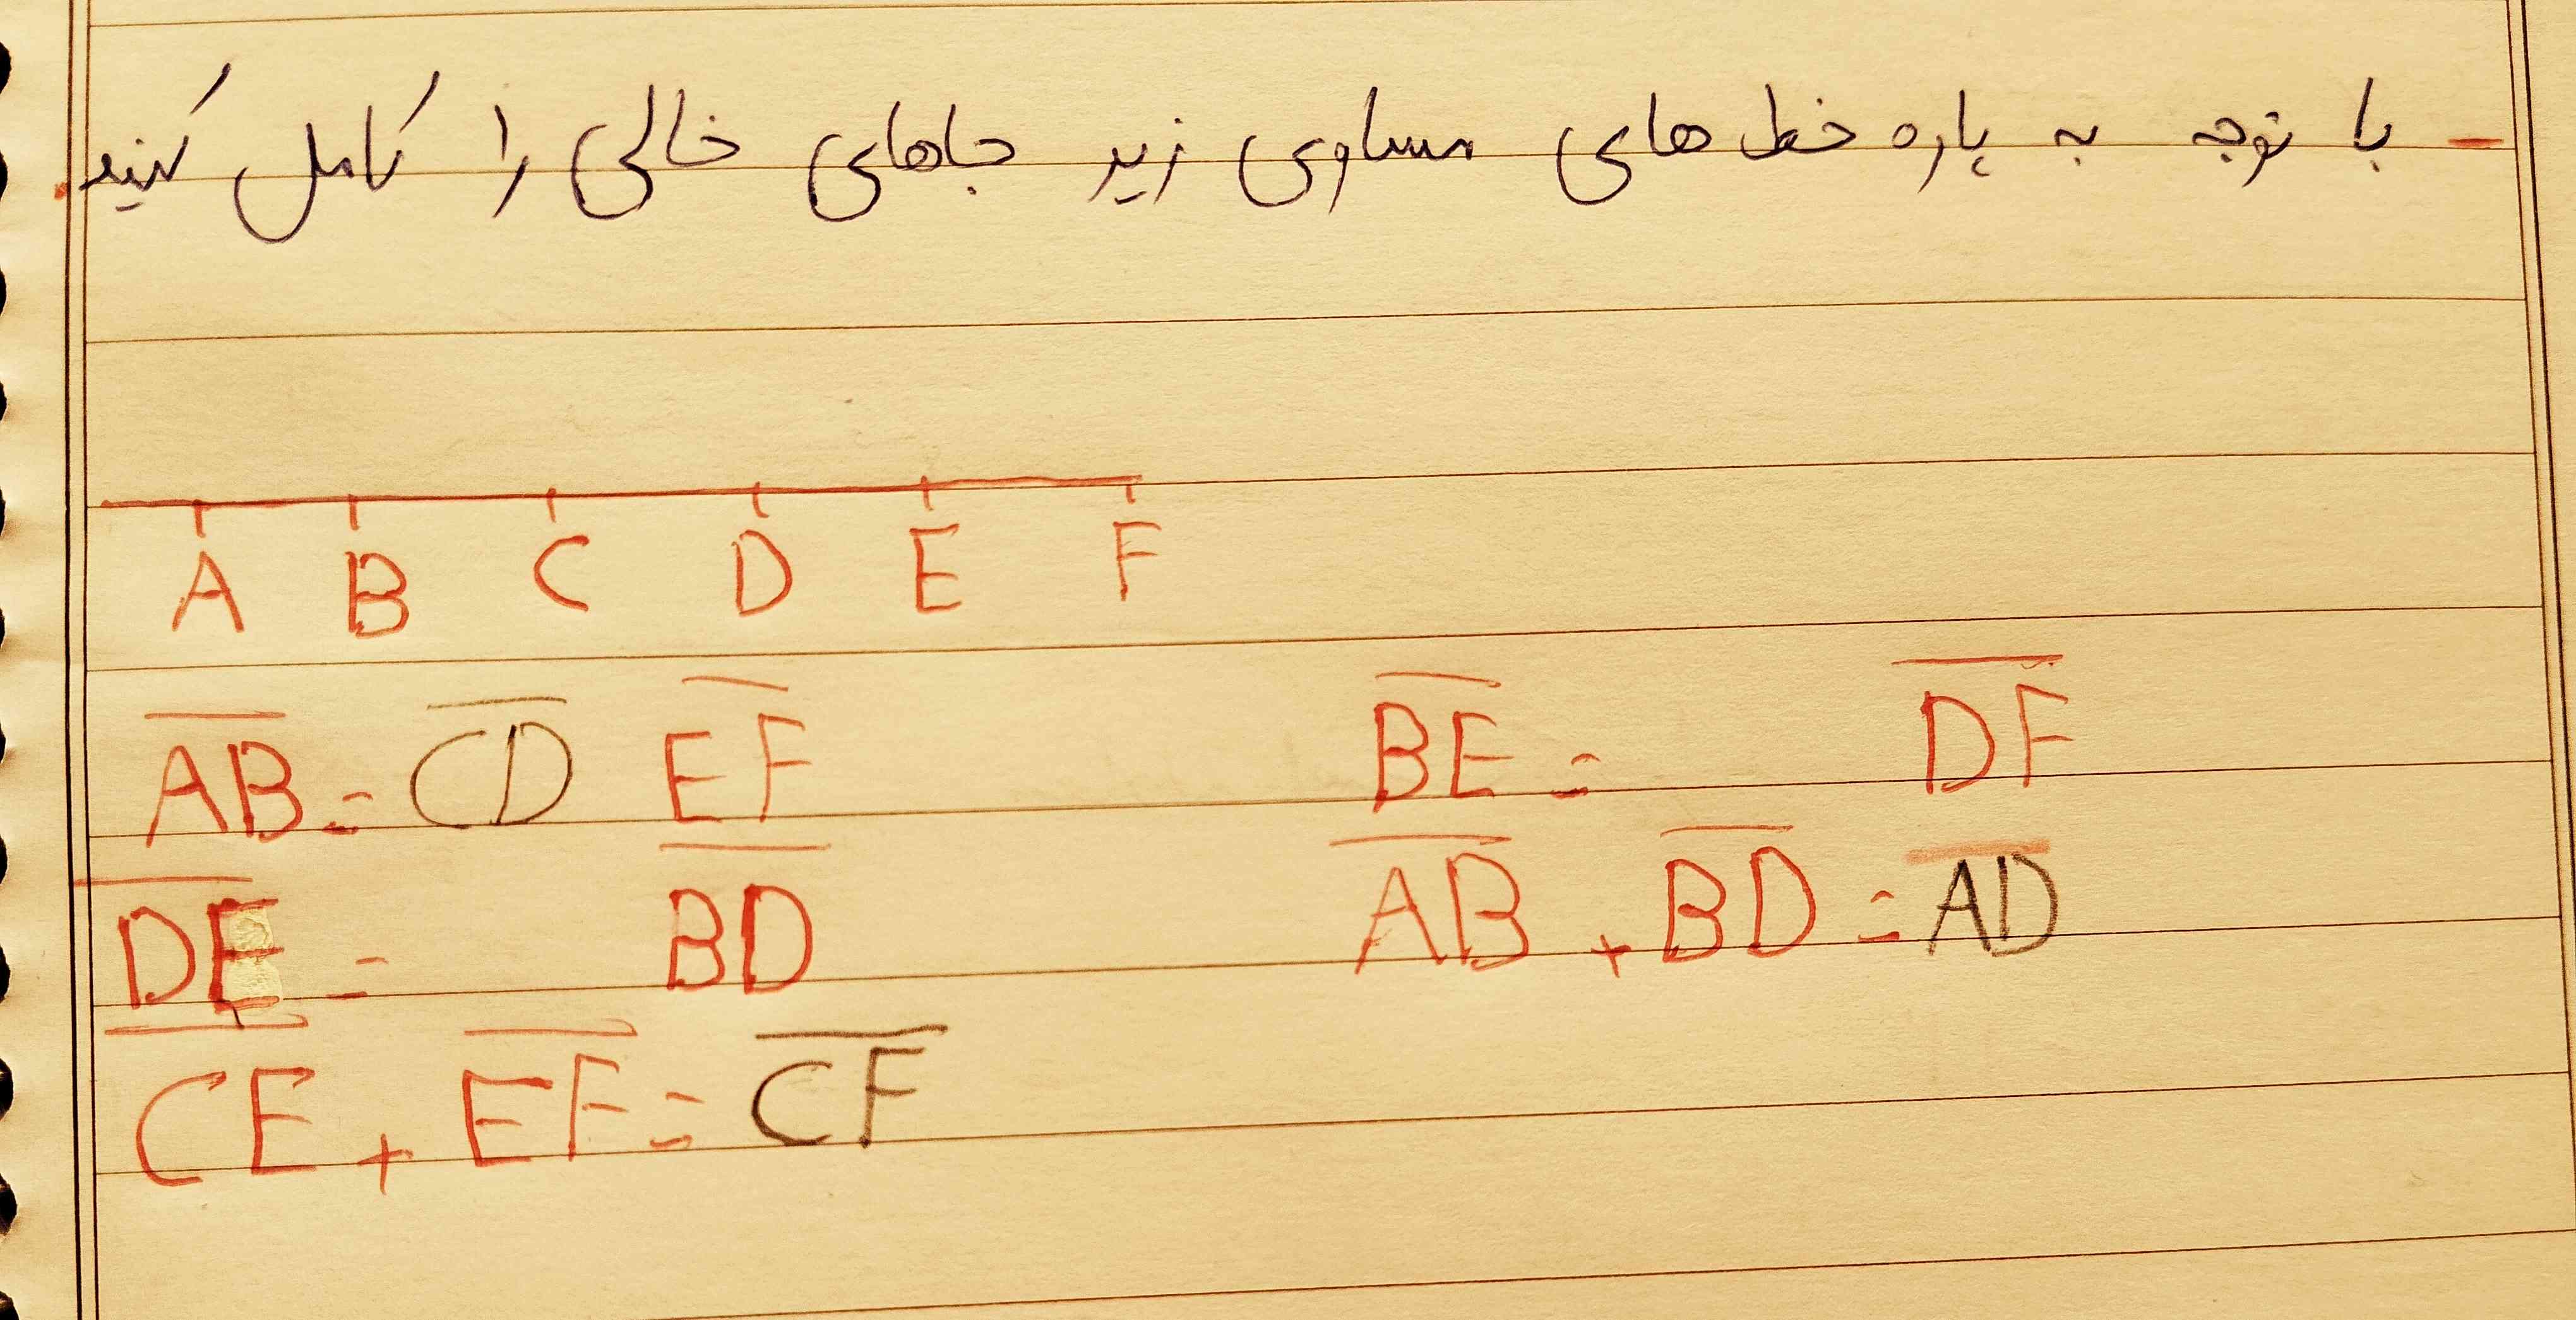 - با توجه به پاره خط های مساوی زیر جاهای خالی را کامل کنید.
A B C D E F
AB = CD EF BE = DF
DE = BD AB + BD = AD
CE + EF = CF